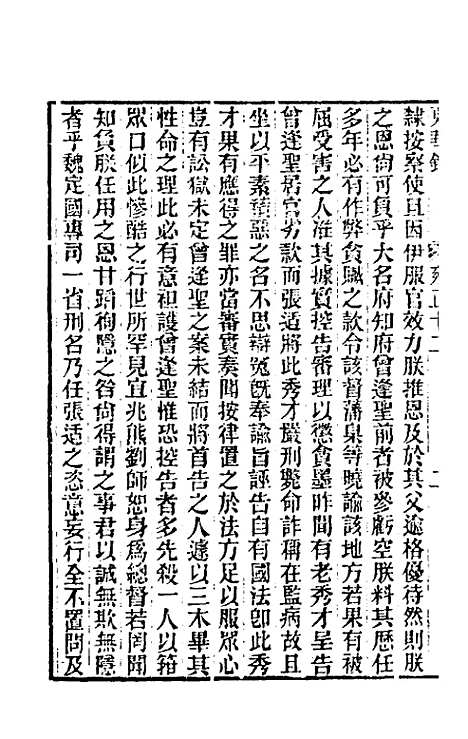 隸按察使且因伊服官效力朕推恩及於其父逾格優待然則朕
之恩尙可負乎大名府知府曾逢聖前者被參虧空朕料其歷任
多年必有作弊貪贓之款令該督藩臬等曉諭該地方若果有被
屈受害之人准其據實控告審理以懲貪墨昨聞有老秀才呈告
曾逢聖居官劣款而張适將此秀才嚴刑斃命詐稱在監病故且
坐以平素積惡之名不思辯冤旣奉諭旨誣告自有國法卽此秀
才果有應得之罪亦當審實奏聞按律置之於法方足以服眾心
豈有訟獄未定曾逢聖之案未結而將首告之人遽以三木畢其
性命之理此必有意袒護曾逢聖惟恐控告者多先殺一人以箝
眾口似此慘酷之行世所罕見宜兆熊劉師恕身爲總督若罔聞
知負朕任用之恩甘蹈徇隱之咎尙得謂之事君以誠無欺無隱
者乎魏定國專司一省刑名乃任張适之恣意妄行全不置問及